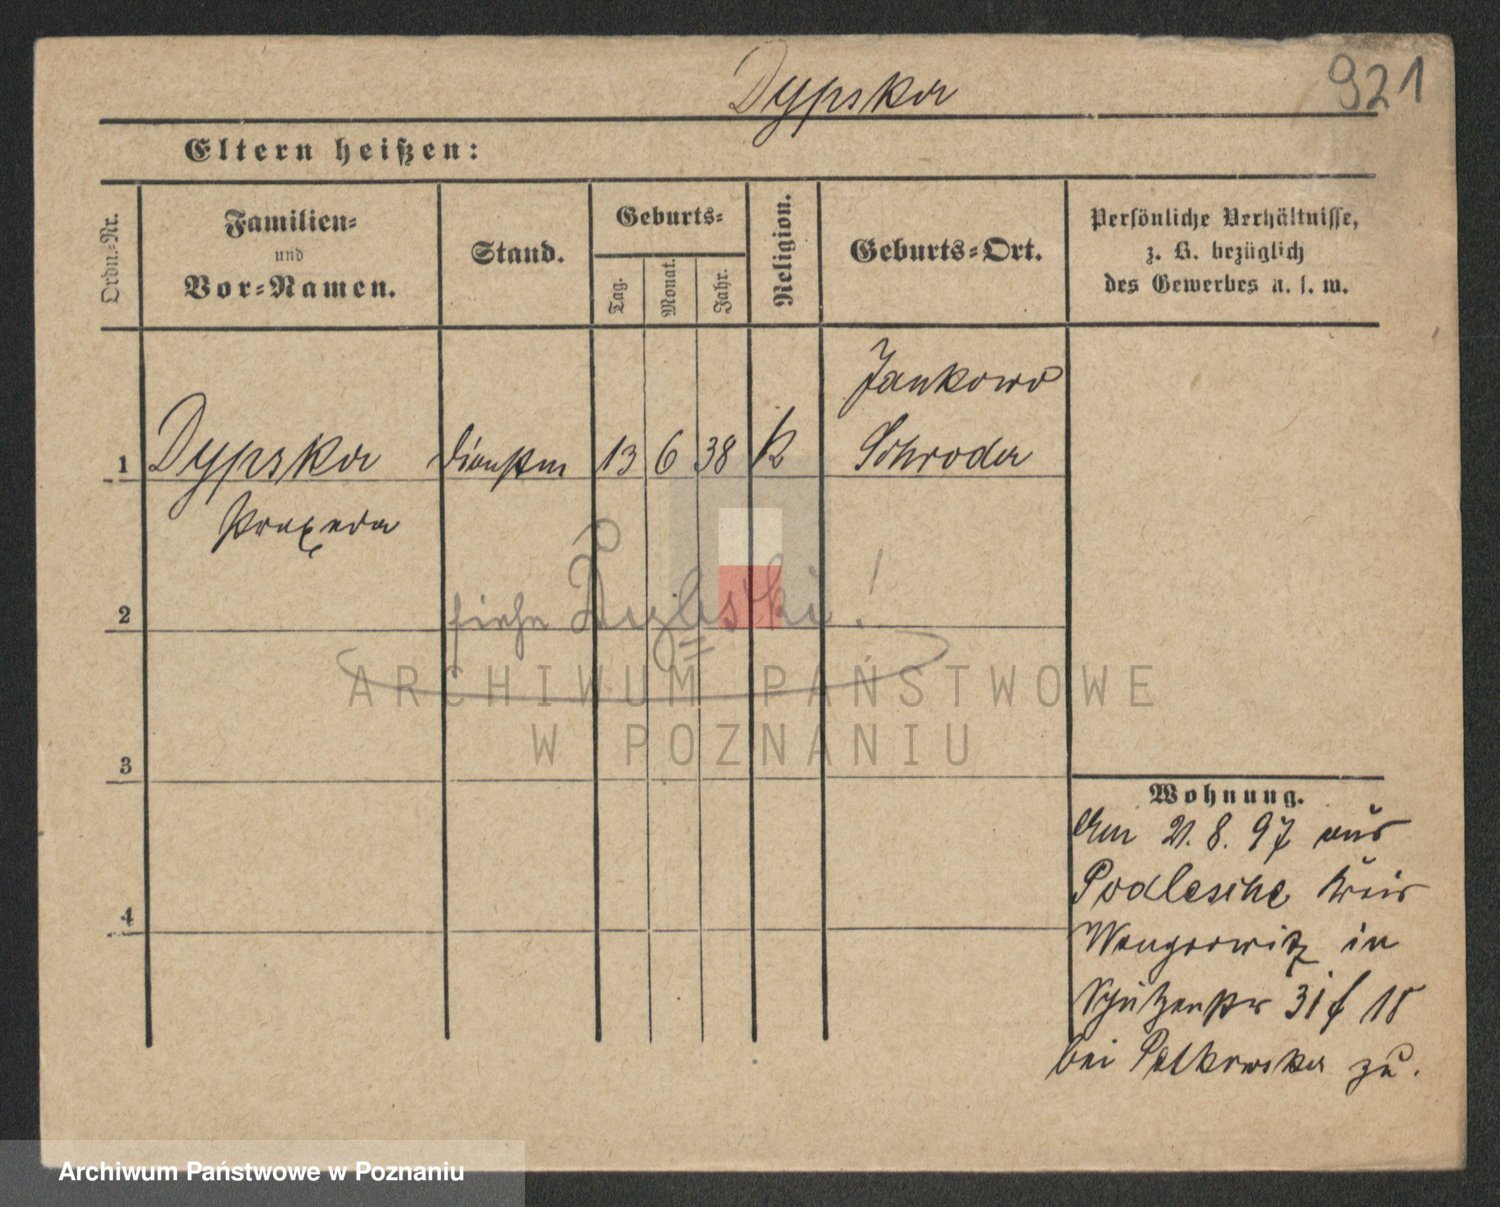 Dypska
921
Eltern heißen:
Ordn.=Nr.
Familien=
und
Vor=Namen.
Stand.
Geburts=
Tag.
Monat.
Jahr.
Religion.
Geburts=Ort.
Persönliche Verhältnisse,
z. B. bezüglich
des Gewerbes u. s. w.
Jankowo
1 Dypska Dienstm 13 6 38 K Schroda
Praxeda
siehe Dezbski!
2
ARCHIWUM PAŃSTWOWE
W POZNANIU
3
Wohnung.
Am 21. 8. 97 aus
Podlesche Kreis
4
Wongrowitz in
Schützenstr 31 f 18
bei Patkowska zu.
Archiwum Państwowe w Poznaniu